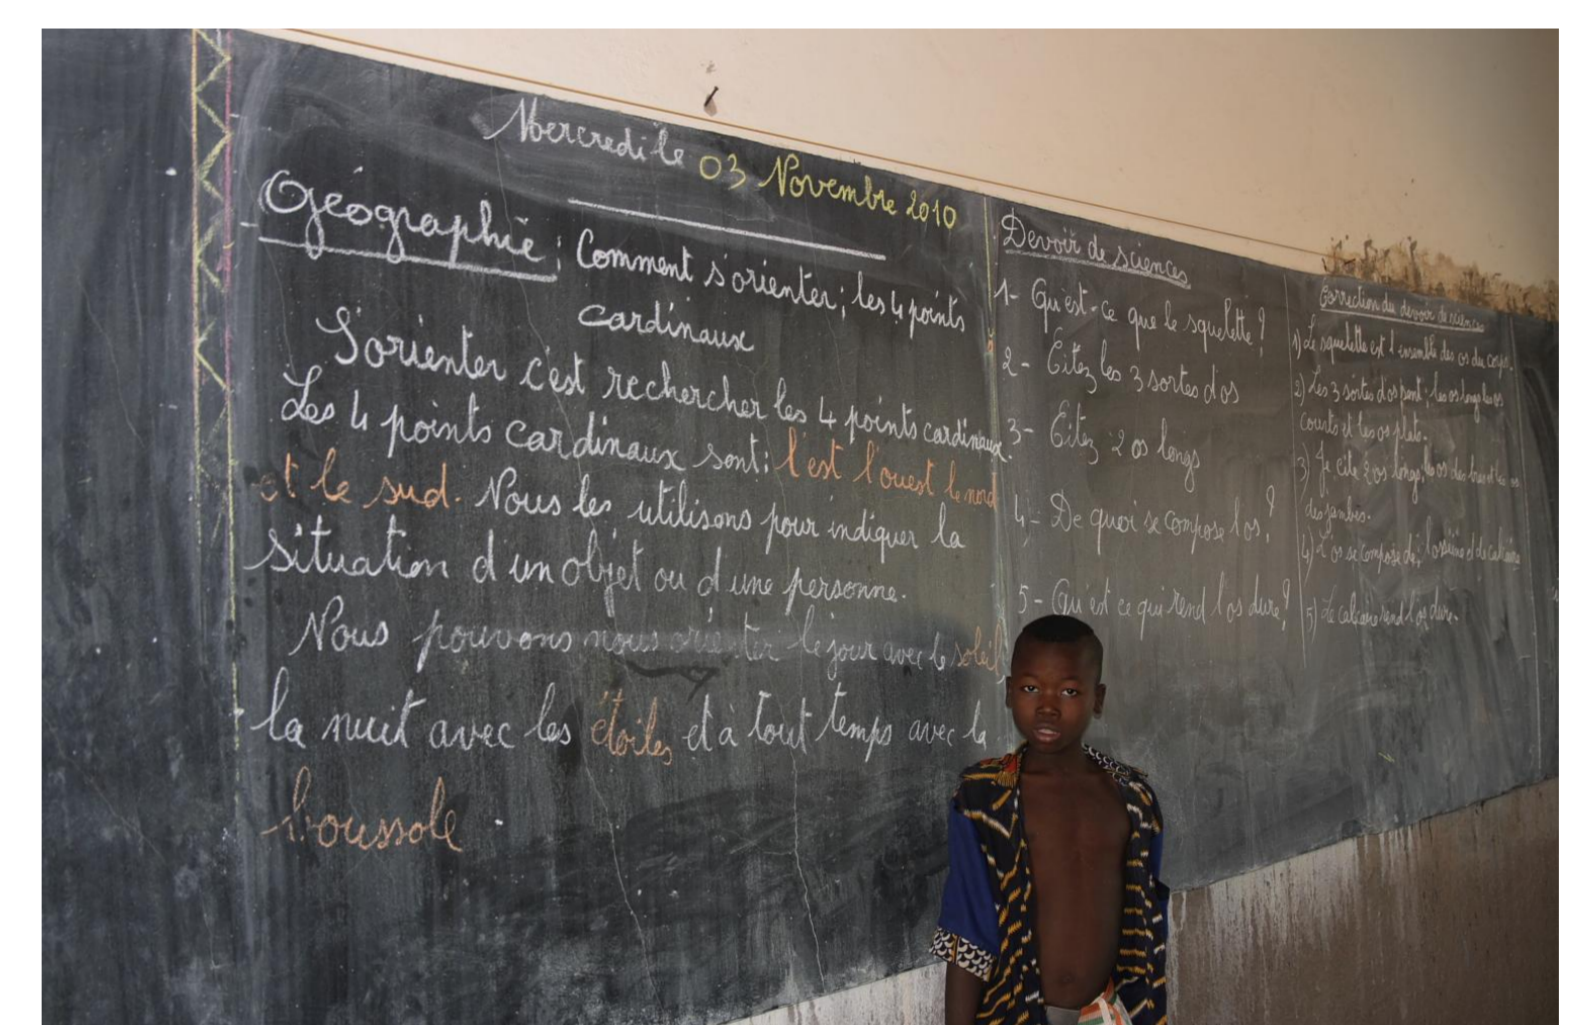 Mercredi le 03 Novembre 2010
Géographie : Comment s'orienter ; les 4 points
cardinaux
S'orienter c'est rechercher les 4 points cardinaux.
Les 4 points cardinaux sont : l'est l'ouest le nord
et le sud. Nous les utilisons pour indiquer la
situation d'un objet ou d'une personne.
Nous pouvons nous orienter le jour avec le soleil,
la nuit avec les étoiles et à tout temps avec la
boussole.
Devoir de sciences
1- Qu'est-ce que le squelette ?
2- Citez les 3 sortes d'os
3- Citez 2 os longs
4- De quoi se compose l'os ?
5- Qu'est ce qui rend l'os dure ?
Correction du devoir de sciences
1) Le squelette est l'ensemble des os du corps.
2) Les 3 sortes d'os sont : les os longs les os
courts et les os plats.
3) Je cite 2 os longs, les os des bras et les os
des jambes.
4) L'os se compose de : l'osséine et de calcaire
5) Le calcaire rend l'os dure.